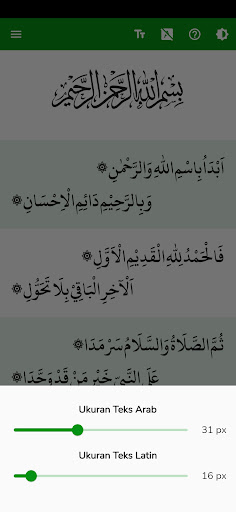 بِسْمِ اللهِ الرَّحْمٰنِ الرَّحِيْمِ
اَبْدَأُ بِاسْمِ اللهِ وَالرَّحْمٰنِ ۞
۞ وَبِالرَّحِيْمِ دَائِمِ الْاِحْسَانِ
فَالْحَمْدُ لِلّٰهِ الْقَدِيْمِ الْاَوَّلِ ۞
۞ اَلْآخِرِ الْبَاقِيْ بِلَا تَحَوُّلِ
ثُمَّ الصَّلَاةُ وَالسَّلَامُ سَرْمَدَا ۞
۞ عَلَى النَّبِيِّ خَيْرِ مَنْ قَدْ وَحَّدَا
Ukuran Teks Arab
31 px
Ukuran Teks Latin
16 px